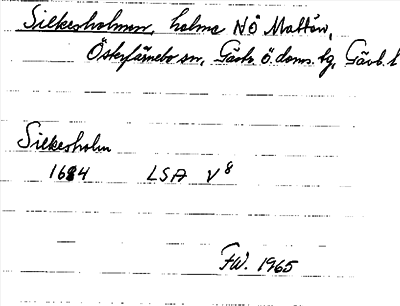 Silkesholmen, holme NÖ Mattön,
Österfärnebo sn, Gästr ö. doms. tg, Gävl. l
Silkesholm
1684 LSA V8
FW. 1965